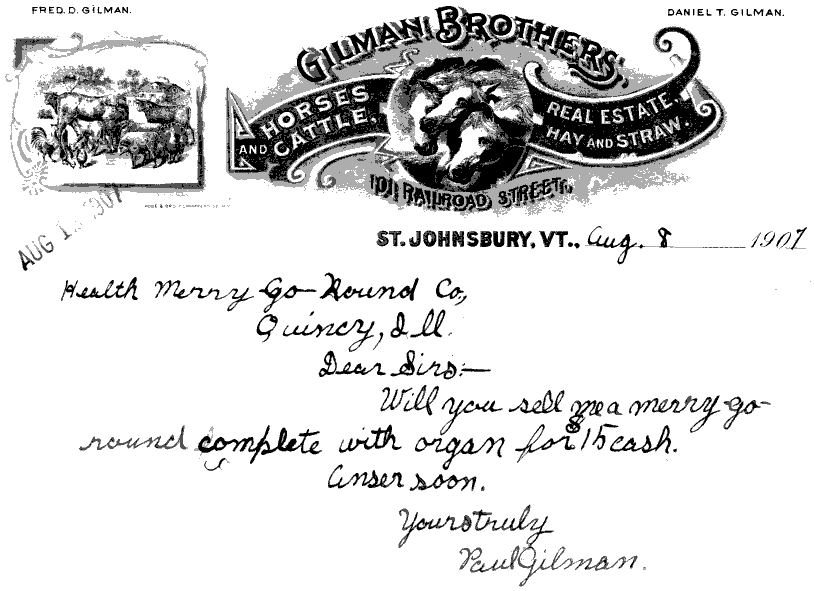 FRED. D. GILMAN.
DANIEL T. GILMAN.
GILMAN BROTHERS,
HORSES AND CATTLE.
REAL ESTATE, HAY AND STRAW.
101 RAILROAD STREET.
AUG 1 1907
ST. JOHNSBURY, VT., Aug. 8 1907
Health Merry-Go-Round Co.,
Quincy, Ill.
Dear Sirs:—
Will you sell me a merry-go-
round complete with organ for $15 cash.
Anser soon.
Yours truly
Paul Gilman.